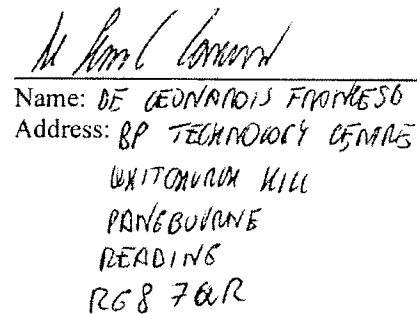 Name: DE LEONARDIS FRANCESCO
Address: BP TECHNOLOGY CENTRE
WHITCHURCH HILL
PANGBOURNE
READING
RG8 7QR